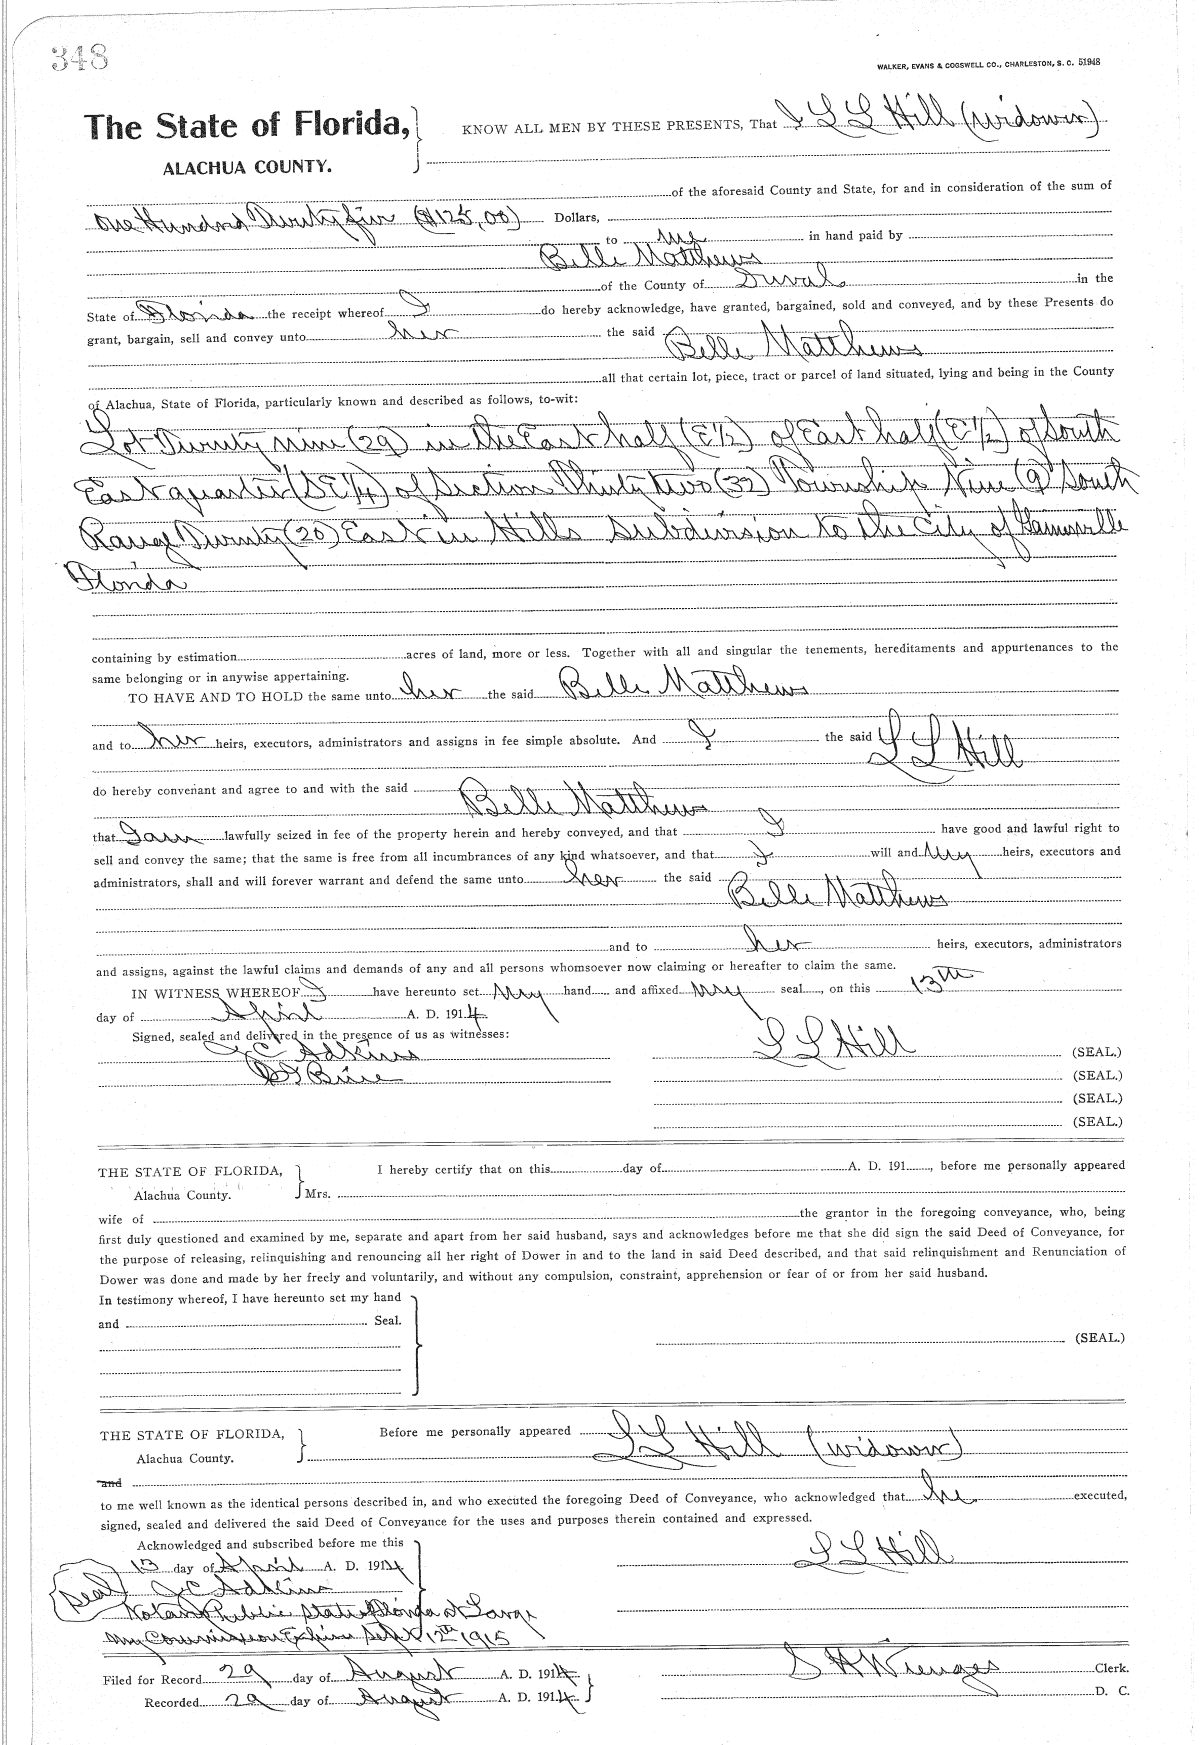 348
WALKER, EVANS & COGSWELL CO., CHARLESTON, S. C. 51948
The State of Florida,
ALACHUA COUNTY.
KNOW ALL MEN BY THESE PRESENTS, That I L L Hill (widower)
of the aforesaid County and State, for and in consideration of the sum of
One Hundred Twenty five ($125,00) Dollars,
to me in hand paid by
Belle Matthews
of the County of Duval in the
State of Florida the receipt whereof I do hereby acknowledge, have granted, bargained, sold and conveyed, and by these Presents do
grant, bargain, sell and convey unto her the said Belle Matthews
all that certain lot, piece, tract or parcel of land situated, lying and being in the County
of Alachua, State of Florida, particularly known and described as follows, to-wit:
Lot Twenty nine (29) in the East half (E 1/2) of East half (E 1/2) of South
East quarter (S E 1/4) of Section Thirty two (32) Township Nine (9) South
Range Twenty (20) East in Hills Subdivision to the City of Gainesville
Florida
containing by estimation acres of land, more or less. Together with all and singular the tenements, hereditaments and appurtenances to the
same belonging or in anywise appertaining.
TO HAVE AND TO HOLD the same unto her the said Belle Matthews
and to her heirs, executors, administrators and assigns in fee simple absolute. And I the said L L Hill
do hereby convenant and agree to and with the said Belle Matthews
that I am lawfully seized in fee of the property herein and hereby conveyed, and that I have good and lawful right to
sell and convey the same; that the same is free from all incumbrances of any kind whatsoever, and that I will and My heirs, executors and
administrators, shall and will forever warrant and defend the same unto her the said Belle Matthews
and to her heirs, executors, administrators
and assigns, against the lawful claims and demands of any and all persons whomsoever now claiming or hereafter to claim the same.
IN WITNESS WHEREOF I have hereunto set My hand and affixed My seal, on this 13th
day of April A. D. 1914.
Signed, sealed and delivered in the presence of us as witnesses:
J C Adkins
L L Hill (SEAL.)
(SEAL.)
(SEAL.)
(SEAL.)
THE STATE OF FLORIDA,
Alachua County.
I hereby certify that on this day of A. D. 191, before me personally appeared
Mrs.
wife of the grantor in the foregoing conveyance, who, being
first duly questioned and examined by me, separate and apart from her said husband, says and acknowledges before me that she did sign the said Deed of Conveyance, for
the purpose of releasing, relinquishing and renouncing all her right of Dower in and to the land in said Deed described, and that said relinquishment and Renunciation of
Dower was done and made by her freely and voluntarily, and without any compulsion, constraint, apprehension or fear of or from her said husband.
In testimony whereof, I have hereunto set my hand
and Seal.
(SEAL.)
THE STATE OF FLORIDA,
Alachua County.
Before me personally appeared L L Hill (widower)
and
to me well known as the identical persons described in, and who executed the foregoing Deed of Conveyance, who acknowledged that he executed,
signed, sealed and delivered the said Deed of Conveyance for the uses and purposes therein contained and expressed.
Acknowledged and subscribed before me this
13 day of April A. D. 1914
L L Hill
Seal J C Adkins
Notary Public State Florida at Large
My Commission Expires Sept 12th 1915
Filed for Record 29 day of August A. D. 1914
S H Wienges Clerk.
Recorded 29 day of August A. D. 1914.
D. C.